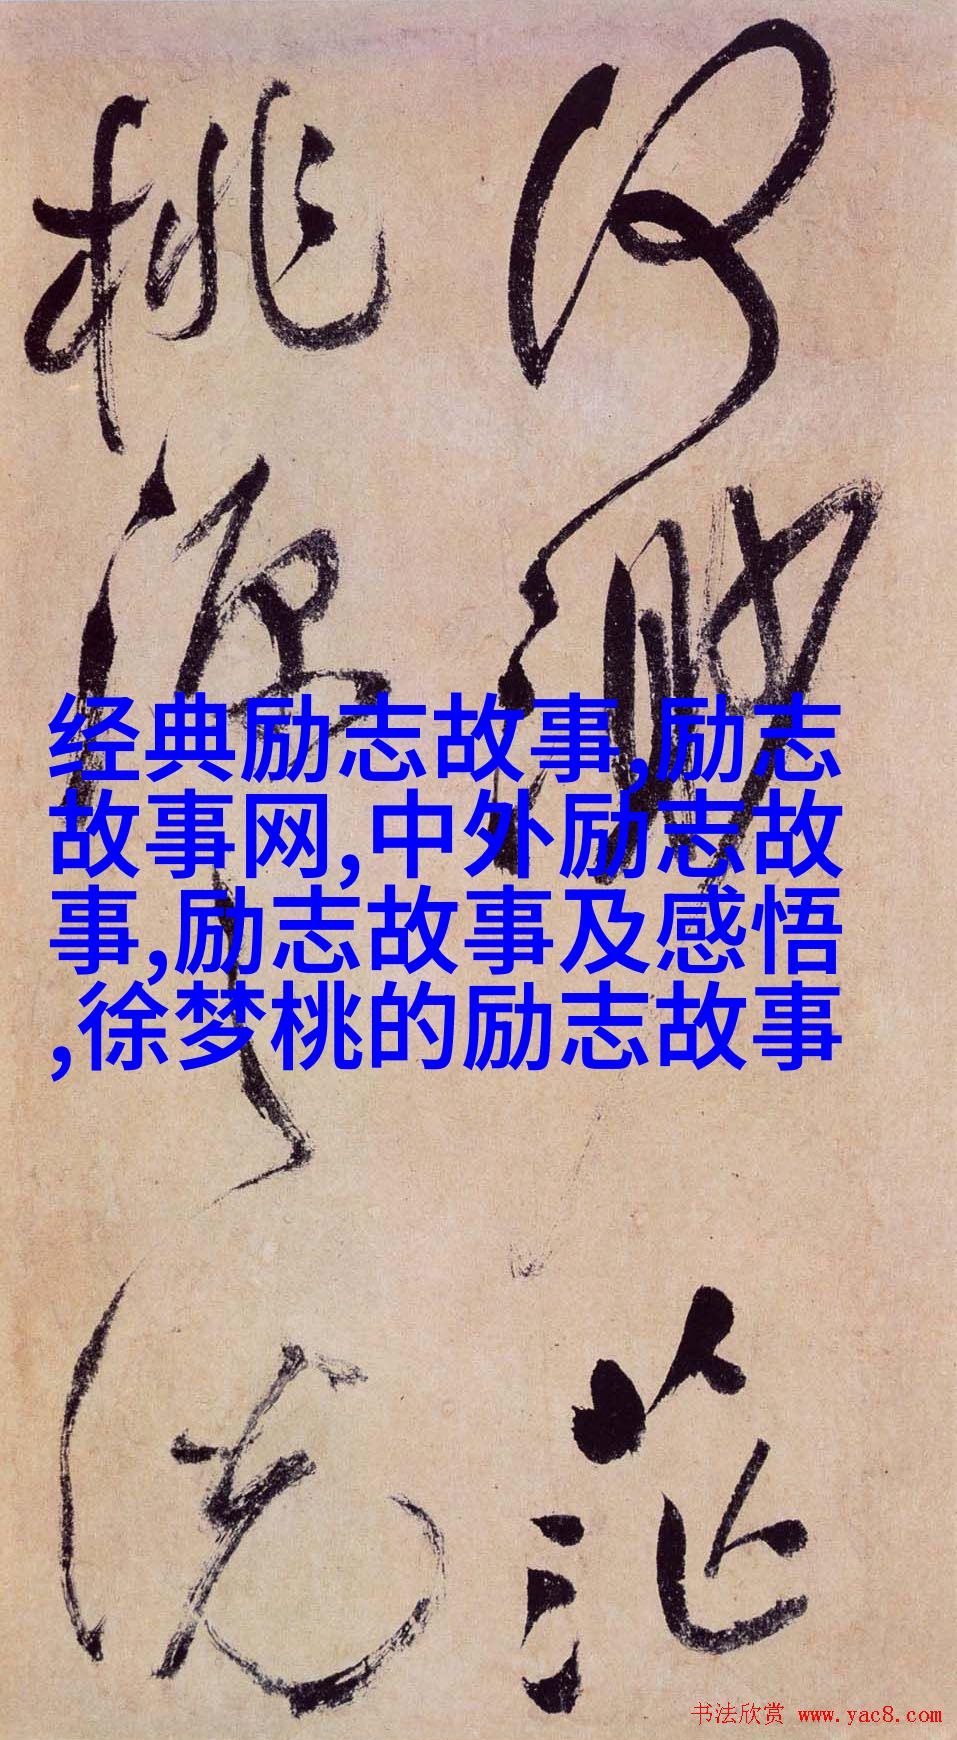 何渺茫
桃源之说
经典励志故事,励志
故事网,中外励志故
事,励志故事及感悟
,徐梦桃的励志故事
书法欣赏 www.yac8.com